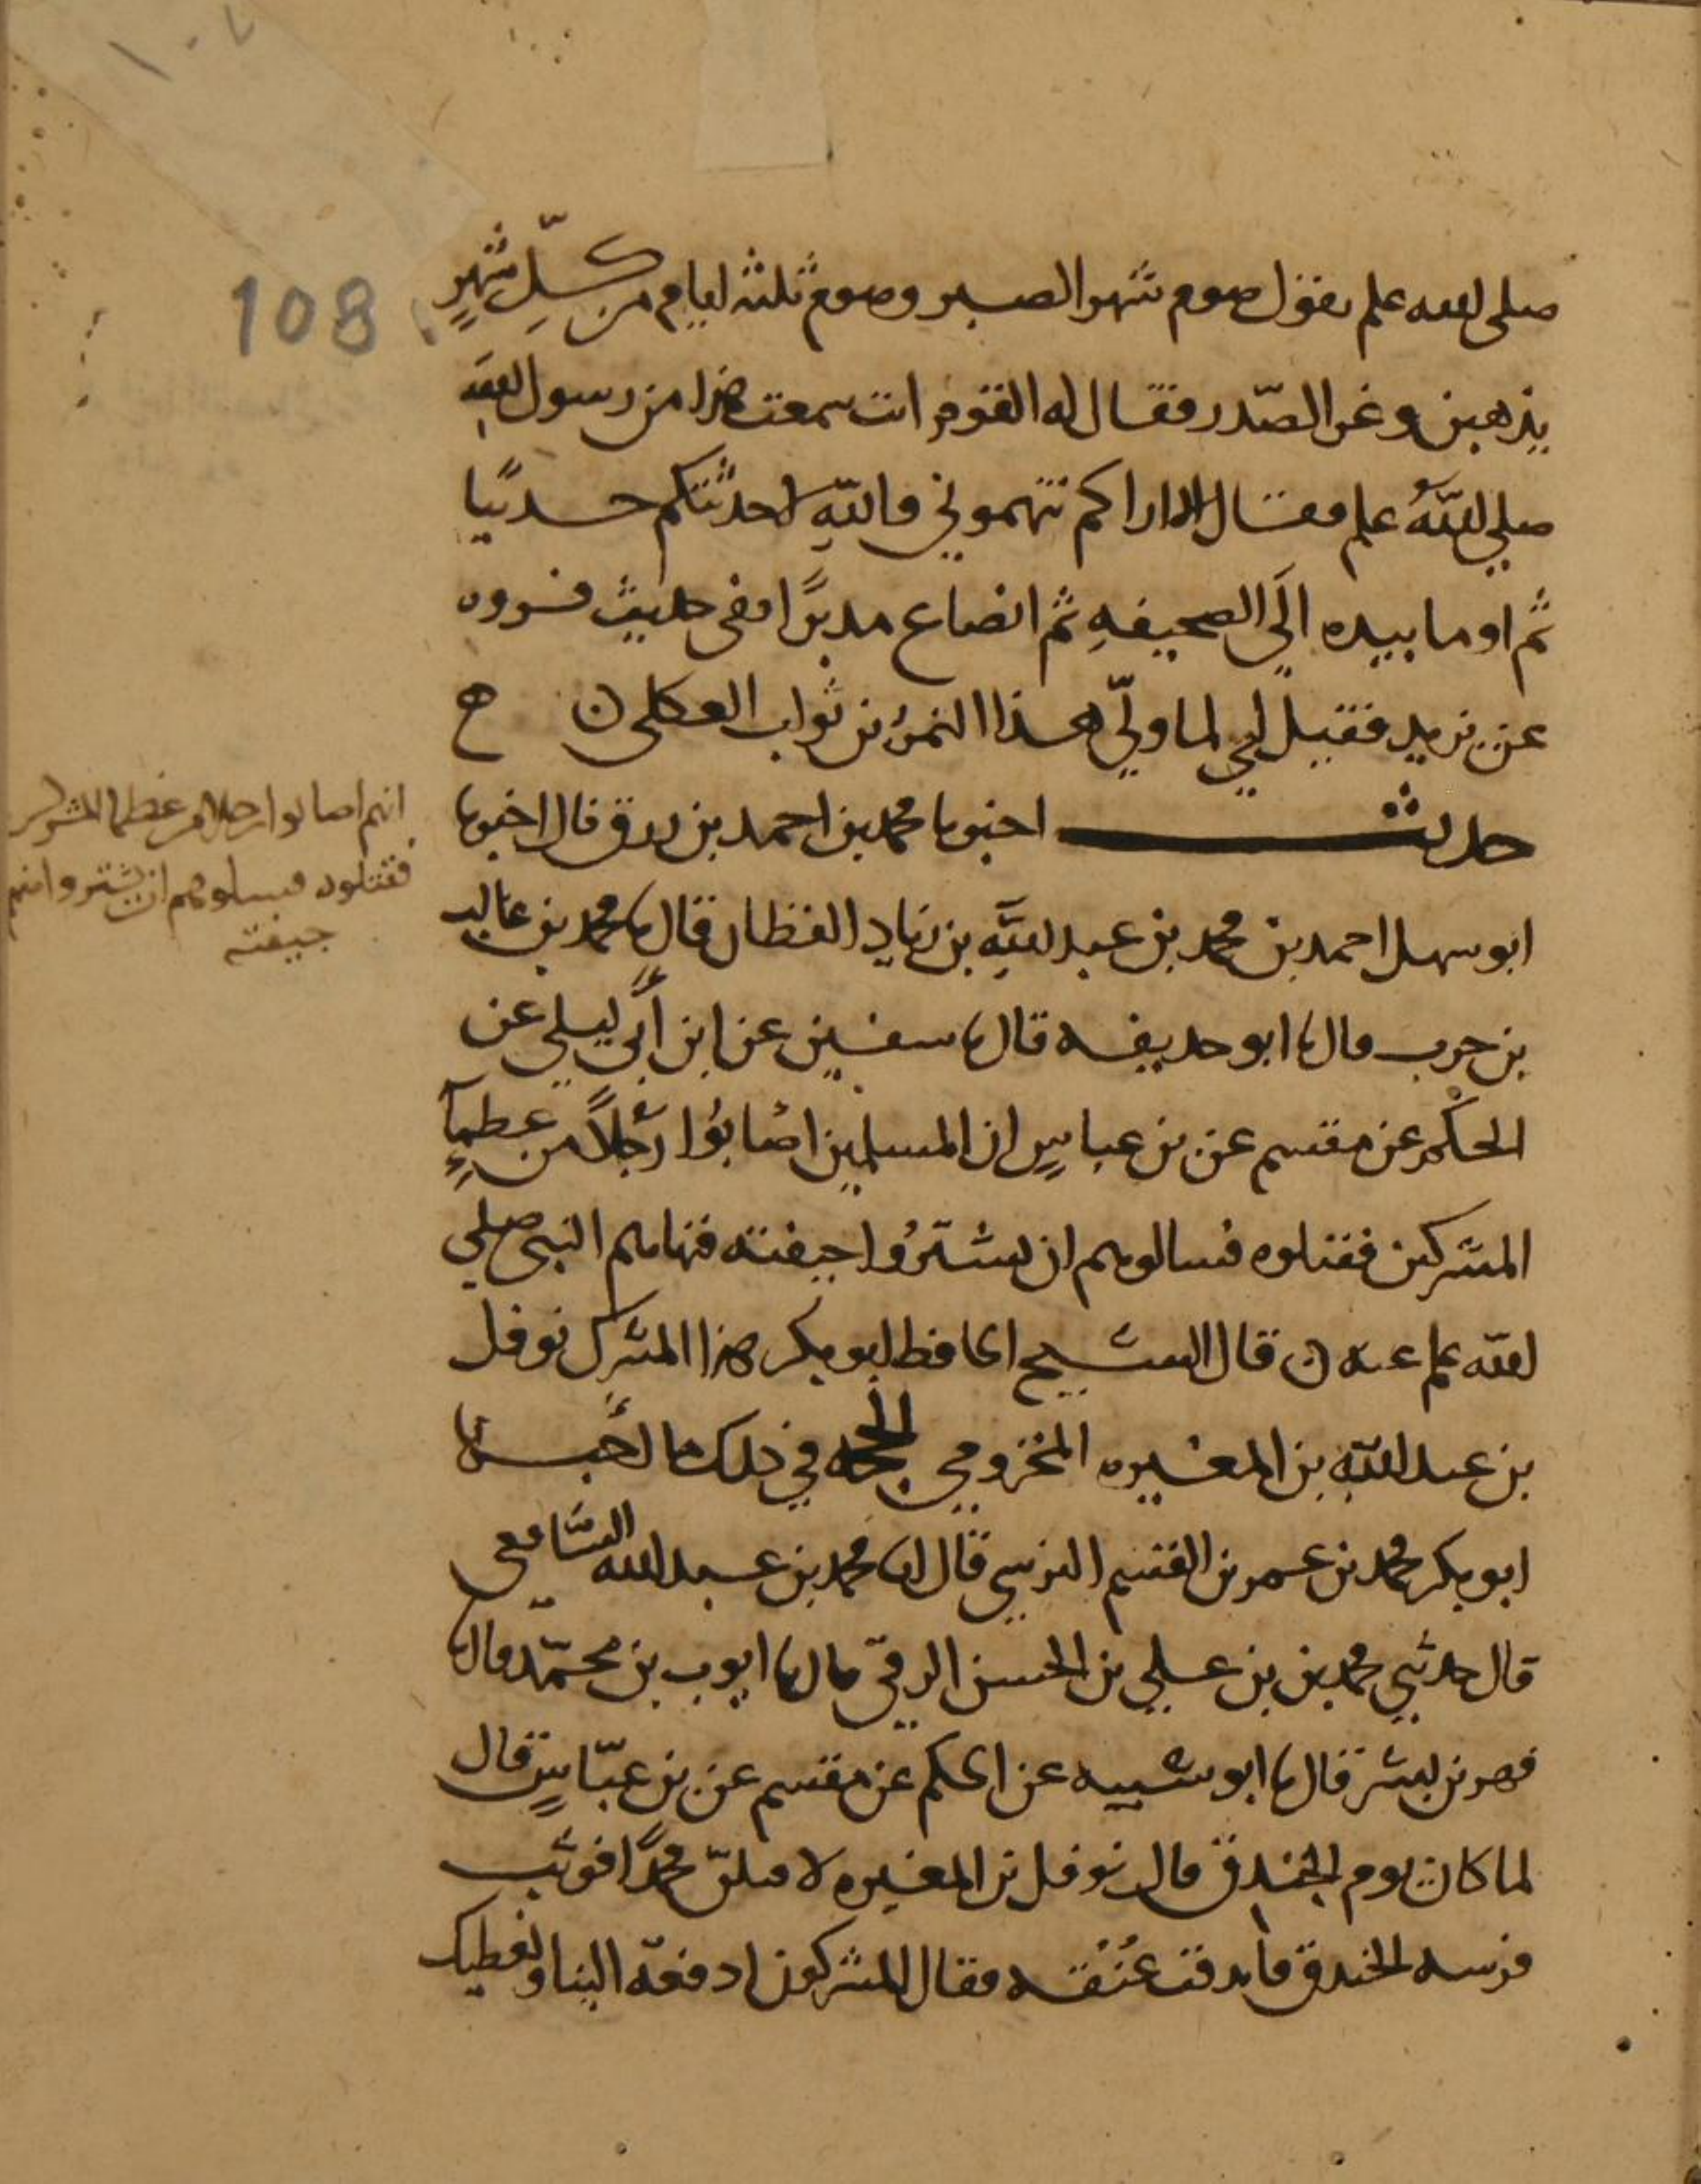 ١٠٧
108
صلى الله علم يقول صوم شهر الصبر وصوم ثلثه ايام من كل شهرٍ
يذهبن وغر الصّدر فقال له القوم انت سمعت هذا من رسول الله
صلي اللهُ علم فقال الا اراكم تتهموني فوالله لا حدثتكم حديثا
ثم اوما بيده الَي الصحيفهِ ثم انصاع مدبرًا وفى حديث قروه
عن يزيد فقيل لي لما ولّي هذا النمر بن ثواب العكلى ه ح
حديث اخبرنا محمد بن احمد بن رزق قال اخبرنا
ابو سهل احمد بن محمد بن عبد اللهِ بن زياد القطان قال نا محمد بن غالب
بن حرب قال نا ابو حذيفه قال نا سفين عن ابن أبي ليلي عن
الحكم عن مقسم عن بن عباسٍ ان المسلمين اصابوُا رجُلاً من عظمآءِ
المشركين فقتلوه فسالوهم ان يشترُوا جيفته فنهاهم النبى صلي
الله علم عنه ه قال الشيخ الحافظ ابو بكر هذا المشرك نوفل
بن عبد اللهِ بن المغيره المخزومي الحجه في ذلك ما اخبرنا
ابو بكر محمد بن عمر بن القسم النرسي قال انا محمد بن عبد الله الشافعى
قال حدثني محمد بن بن علي بن الحسن الرقي قال نا ايوب بن محمّد قال نا
فهر بن بشر قال نا ابو شيبه عن الحكم عن مقسم عن بن عبّاسٍ قال
لما كان يوم الخندق قال نوفل بن المغيره لاقتلن محمدًا فوثب
فرسه الخندق فاندقت عُنُقه فقال المشركون ادفعه الينا ونعطيك
انهم اصابوا رجلا من عظما المشركين
فقتلوه فسالوهم ان يشتروا منهم
جيفته